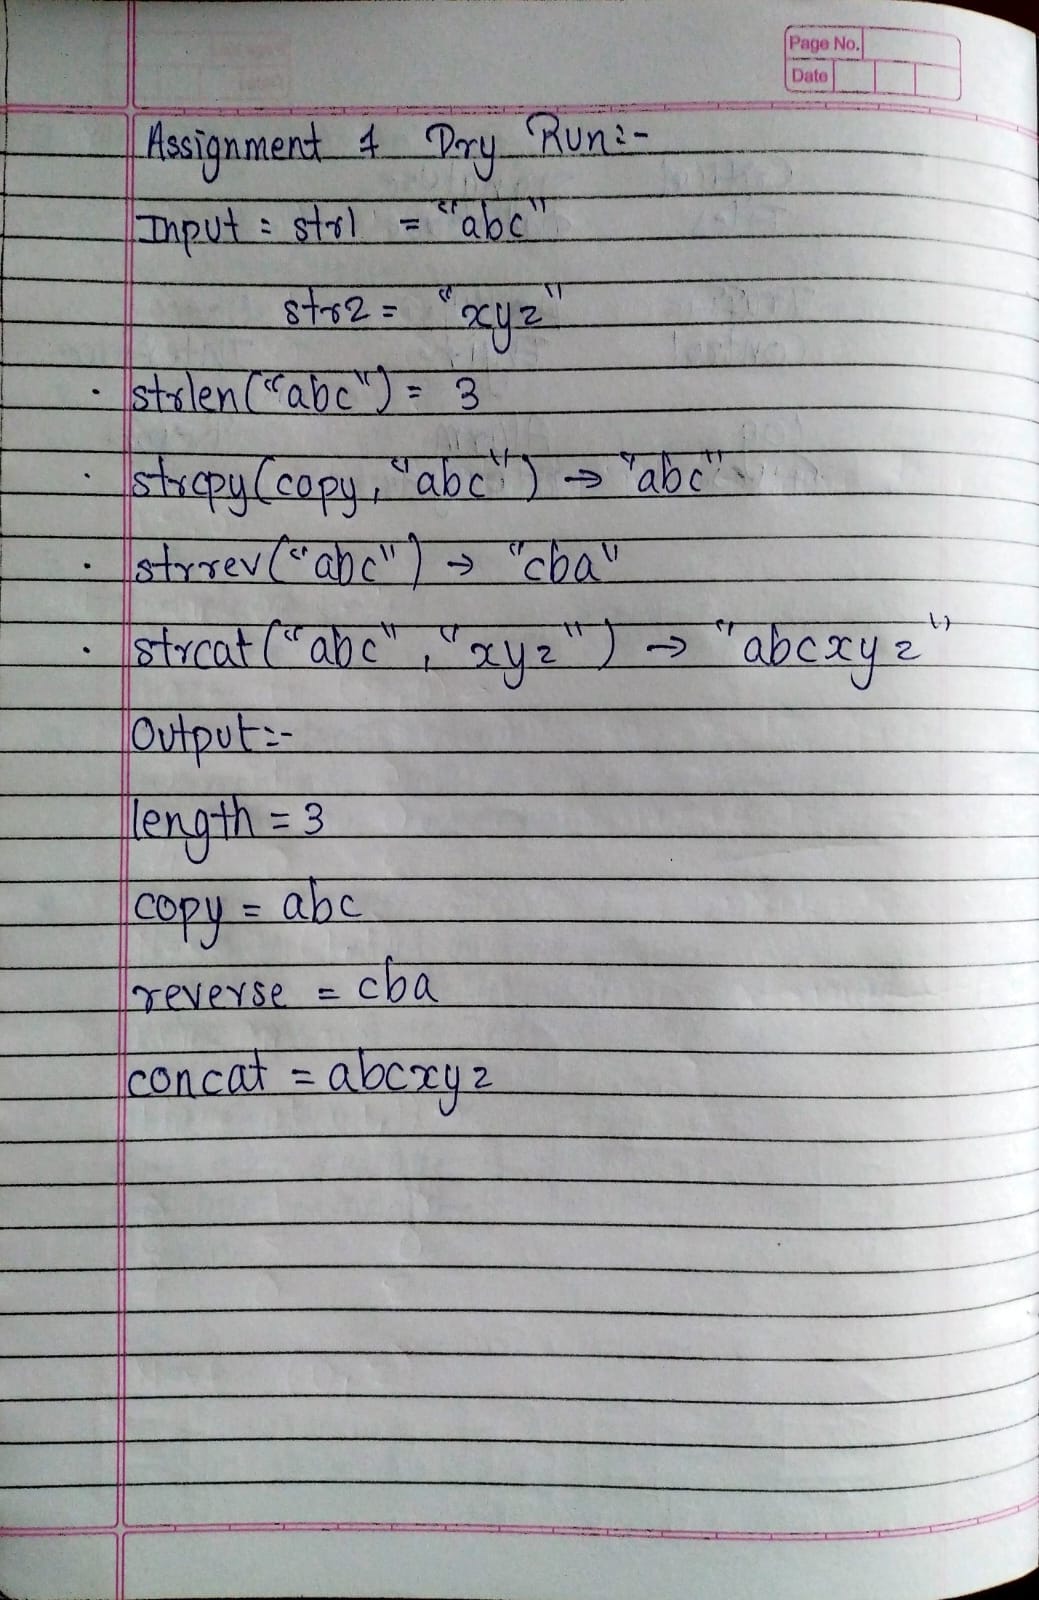 Page No.
Date
Assignment 1 Dry Run:-
Input: str1 = "abc"
str2 = "xyz"
. strlen("abc") = 3
. strcpy(copy, "abc") → "abc"
. strrev("abc") → "cba"
. strcat("abc", "xyz") → "abcxyz"
Output:-
length = 3
copy = abc
reverse = cba
concat = abcxyz